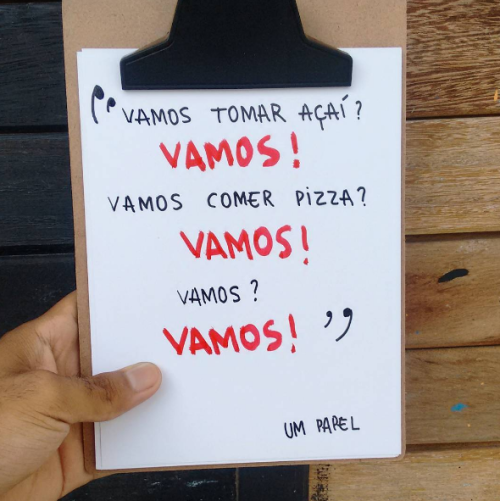 “VAMOS TOMAR AÇAÍ?
VAMOS!
VAMOS COMER PIZZA?
VAMOS!
VAMOS?
VAMOS! ”
UM PAPEL